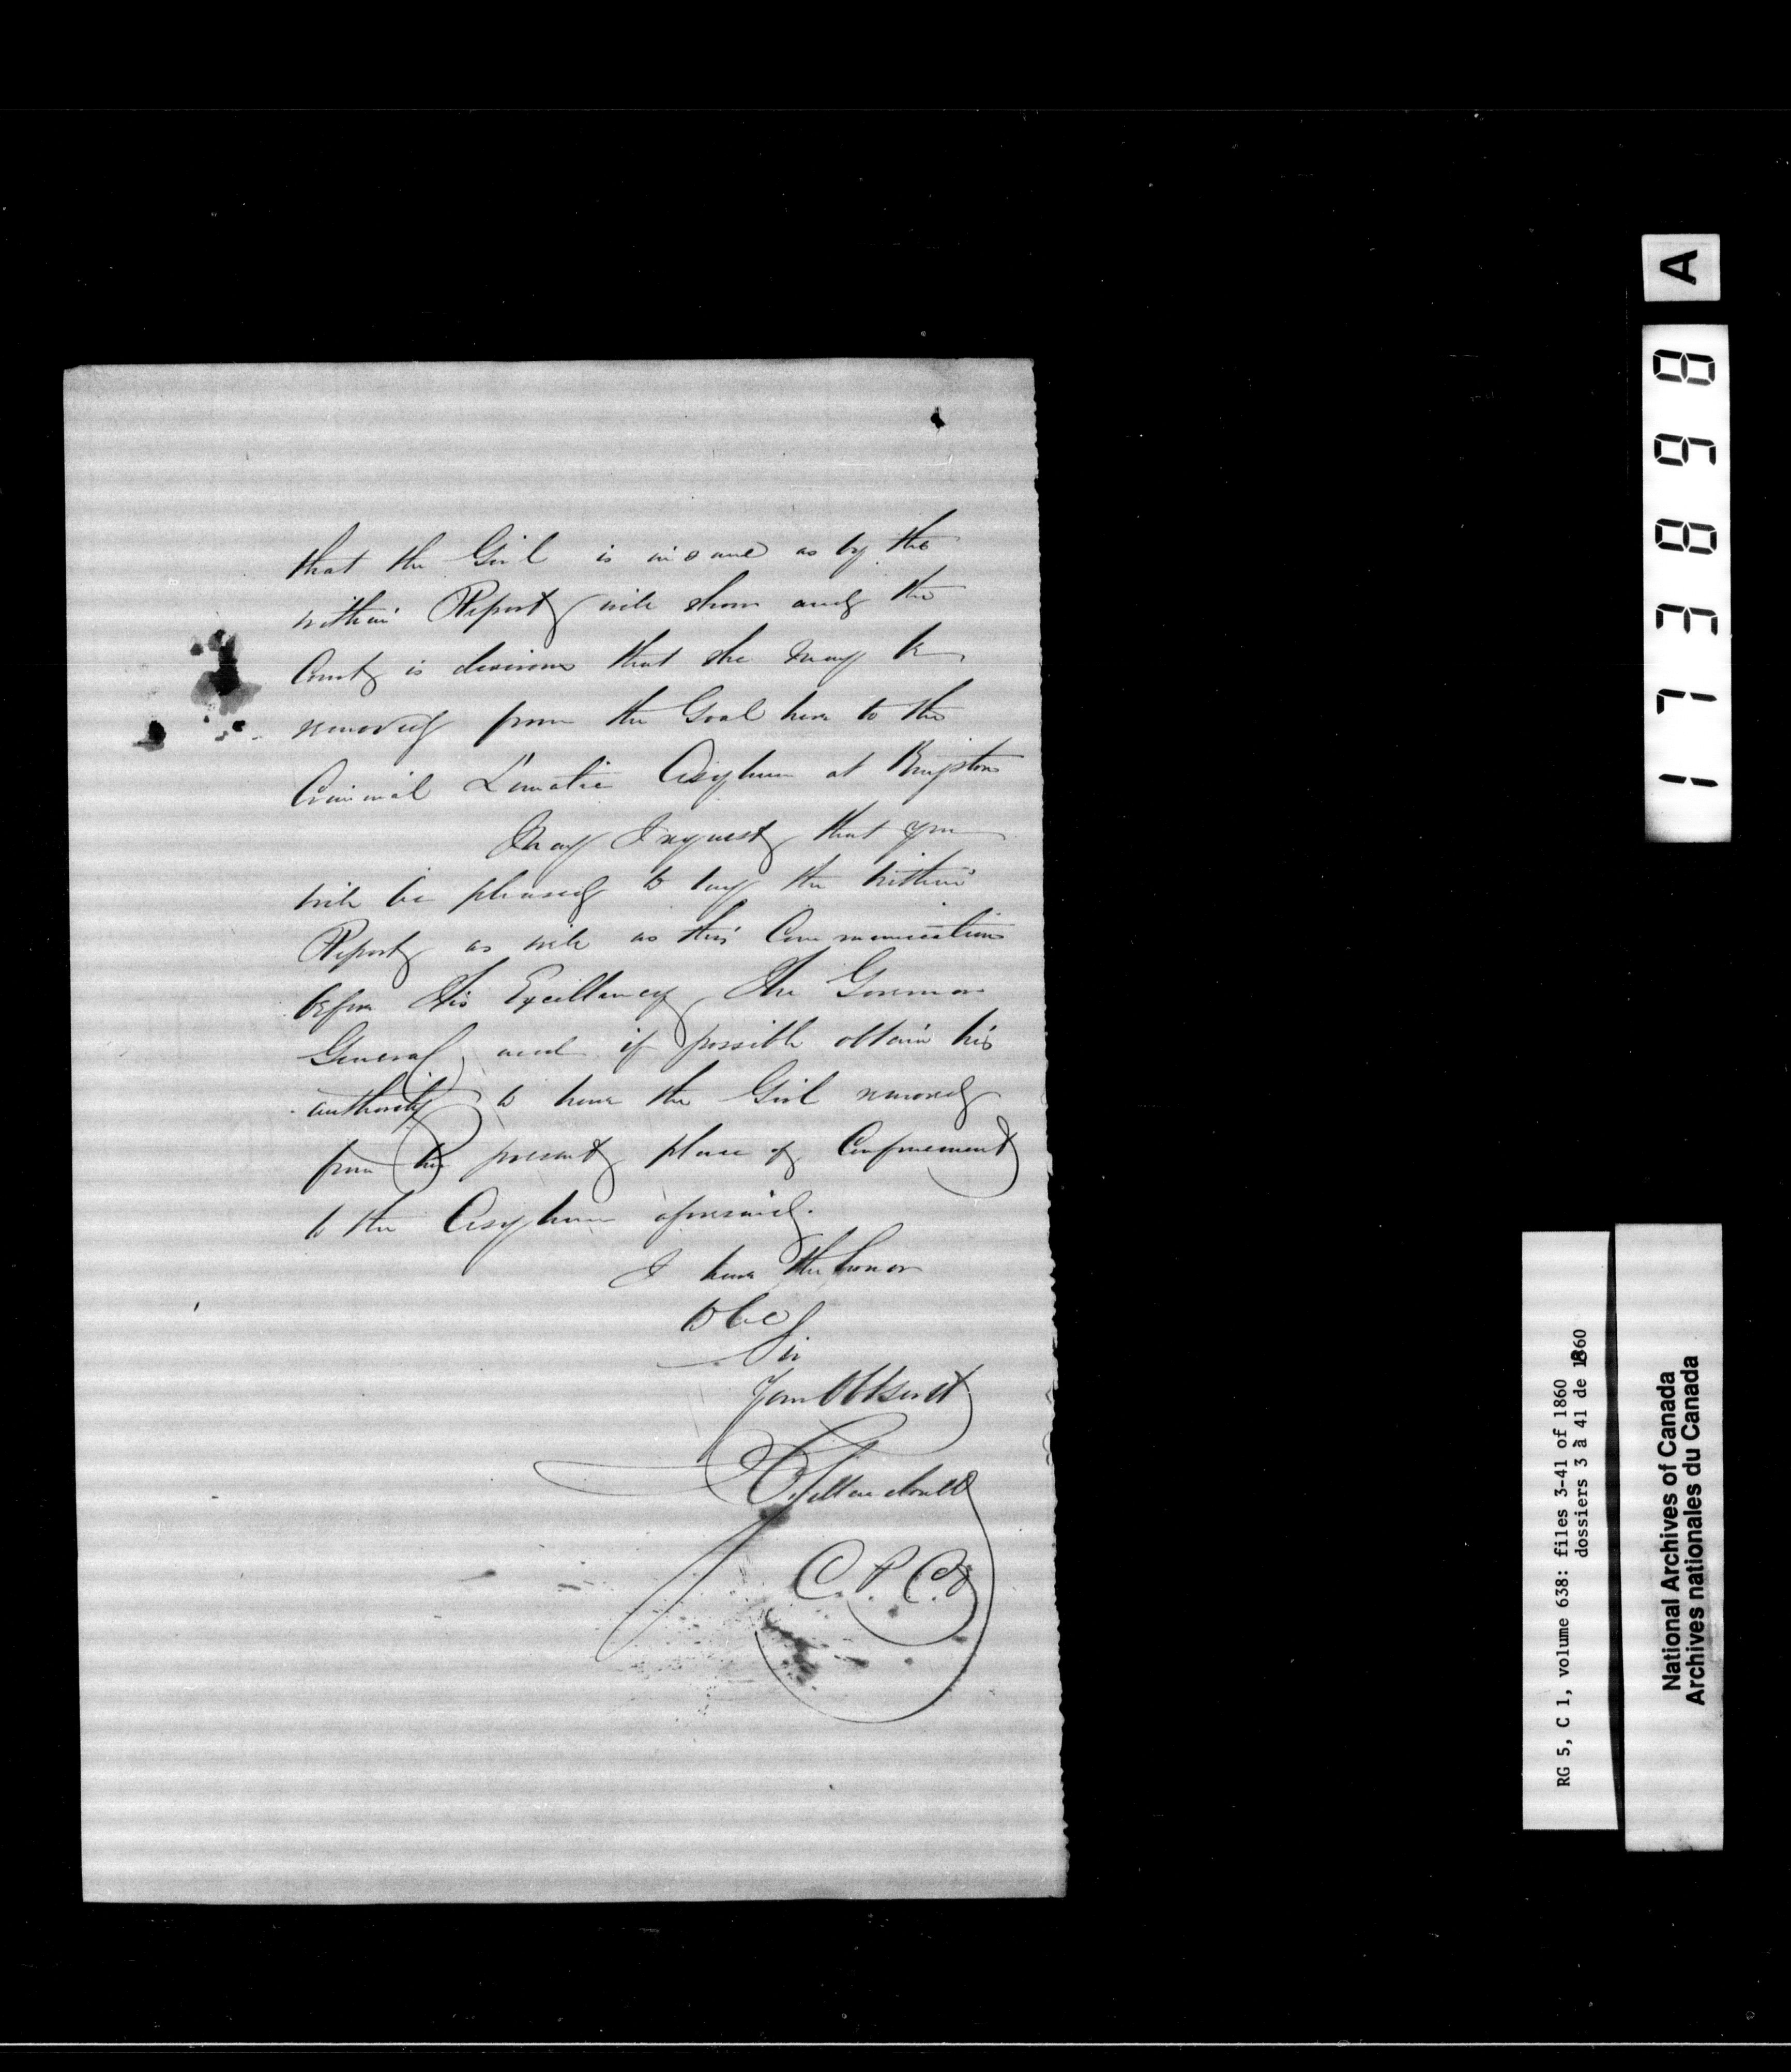 that the Girl is insane as by the
within Report will show and the
Court is desirous that she may be
removed from the Goal here to the
Criminal Lunatic Asylum at Kingston
May I request that you
will be pleased to lay the within
Report as well as this Communication
before His Excellency The Governor
General, and if possible obtain his
authority to have the Girl removed
from her present place of Confinement
to the Asylum aforesaid.
I have the honor
to be
Sir
Your Obt Servt
C.P.
A
171388698
RG 5, C 1, volume 638: files 3-41 of 1860
dossiers 3 à 41 de 1860
National Archives of Canada
Archives nationales du Canada